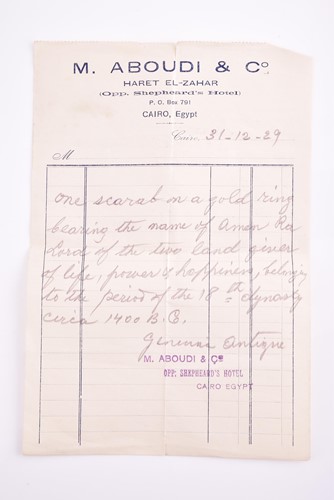 M. ABOUDI & Co.
HARET EL-ZAHAR
(Opp. Shepheard's Hotel)
P. O. Box 791
CAIRO, Egypt
Cairo, 31-12-29
M
One scarab in a gold ring
bearing the name of Amen Ra
Lord of the two land giver
of life, power & happiness, belongs
to the period of the 18th dynasty
circa 1400 B.C.
Genuine Antique
M. ABOUDI & Co
OPP: SHEPHEARD'S HOTEL
CAIRO EGYPT